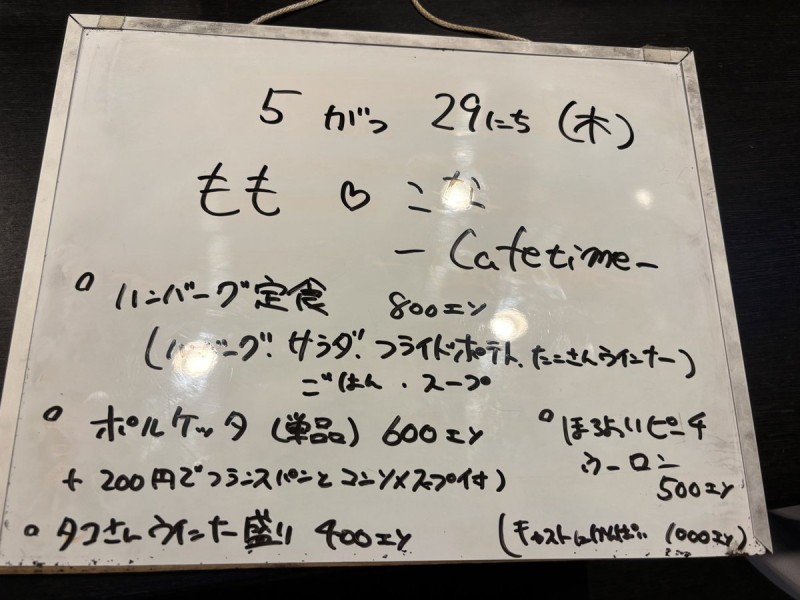 5 がつ 29にち (木)
もも ♡ こな
- Cafetime -
○ ハンバーグ定食 800エン
(ハンバーグ. サラダ. フライドポテト. たこさんウインナー)
ごはん . スープ
○ ポルケッタ (単品) 600エン
+ 200円でフランスパンとコンソメスープ付)
○ タコさんウインナー盛り 400エン
○ ほろよいピーチ
ウーロン
500エン
(キャスト 1000エン)